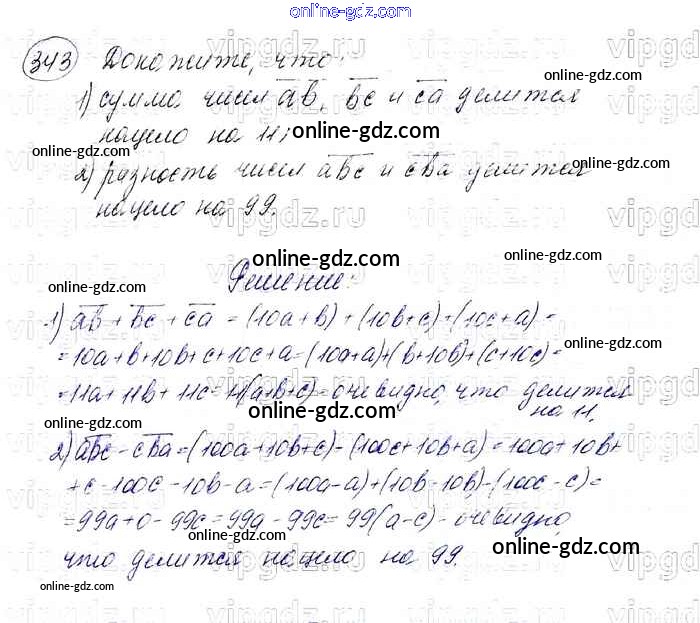 online-gdz.com
343 Докажите, что:
online-gdz.com
1) сумма чисел a̅b̅, b̅c̅ и c̅a̅ делится
нацело на 11;
online-gdz.com
online-gdz.com
2) разность чисел a̅b̅c̅ и c̅b̅a̅ делится
online-gdz.com
нацело на 99.
online-gdz.com
online-gdz.com
Решение:
online-gdz.com
1) a̅b̅ + b̅c̅ + c̅a̅ = (10a + b) + (10b + c) + (10c + a) =
= 10a + b + 10b + c + 10c + a = (10a + a) + (b + 10b) + (c + 10c) =
online-gdz.com
online-gdz.com
= 11a + 11b + 11c = 11(a + b + c) - очевидно, что делится
на 11.
online-gdz.com
online-gdz.com
2) a̅b̅c̅ - c̅b̅a̅ = (100a + 10b + c) - (100c + 10b + a) = 100a + 10b +
+ c - 100c - 10b - a = (100a - a) + (10b - 10b) - (100c - c) =
online-gdz.com
= 99a + 0 - 99c = 99a - 99c = 99(a - c) - очевидно,
online-gdz.com
online-gdz.com
что делится нацело на 99.
online-gdz.com
vipgdz.ru